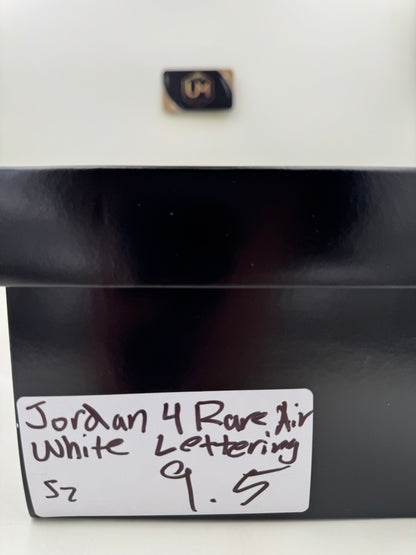 Jordan 4 Rare Air
White Lettering
Sz 9.5